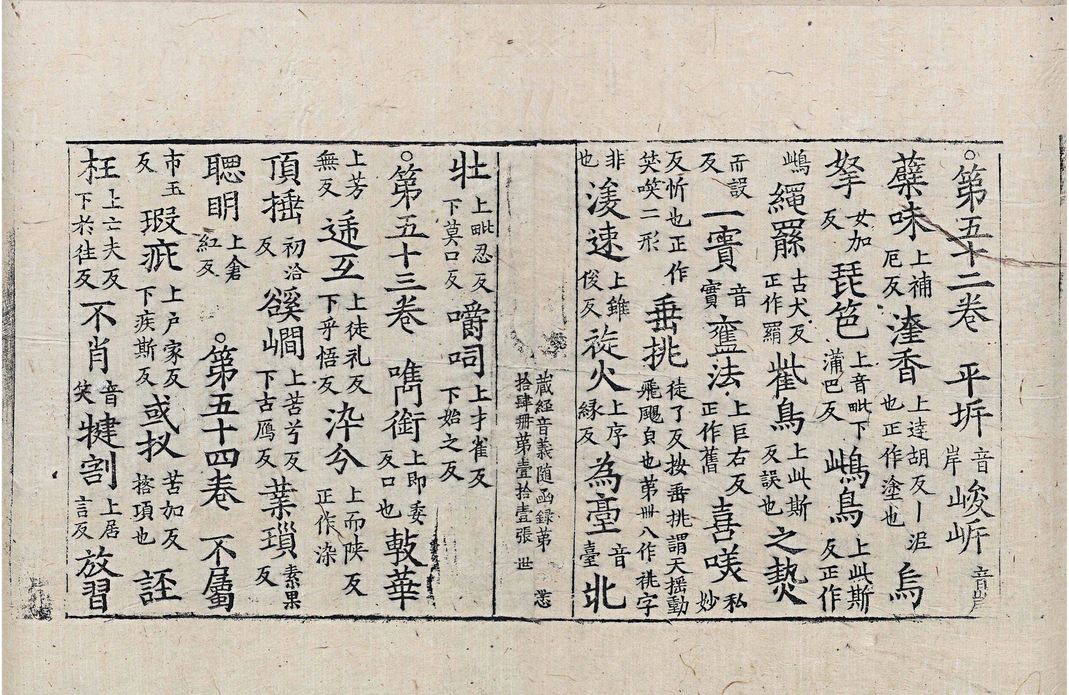 ○第五十二卷 平㘁音岸 峻㟁音岸
蘖味上補厄反 塗香上達胡反丨泥也正作塗也 烏
拏女加反 琵笆上音毗下蒲巴反 鴜鳥上此斯反正作
鴜 繩羂古犬反正作罥 鴜鳥上此斯反誤也 之熱
而設反 一實音實 舊法上巨右反正作舊 喜𠸍私妙
反忻也正作笑𠸍二形 垂挑徒了反按垂挑謂天揺動飛颺皃也苐卌八作祧字
非也 淩速上錐俊反 㳂火上序緣反 為臺音臺 北
藏經音義随函録苐
拾肆冊苐壹拾壹張 世 𢙣
牡上毗忍反下莫口反 嚼司上才雀反下始之反
○第五十三卷 噍銜上即委反口也 敷華
上芳無反 逓互上徒礼反下乎悟反 染兮上而陕反正作染
頂揷初洽反 谿㵎上苦兮反下古鴈反 葉瑣素果反
聰明上倉紅反 ○第五十四卷 不屬
市玉反 瑕疵上户家反下疾斯反 或扠苦加反搭項也 誑
枉上亡夫反下於往反 不肖音笑 犍割上居言反 放習